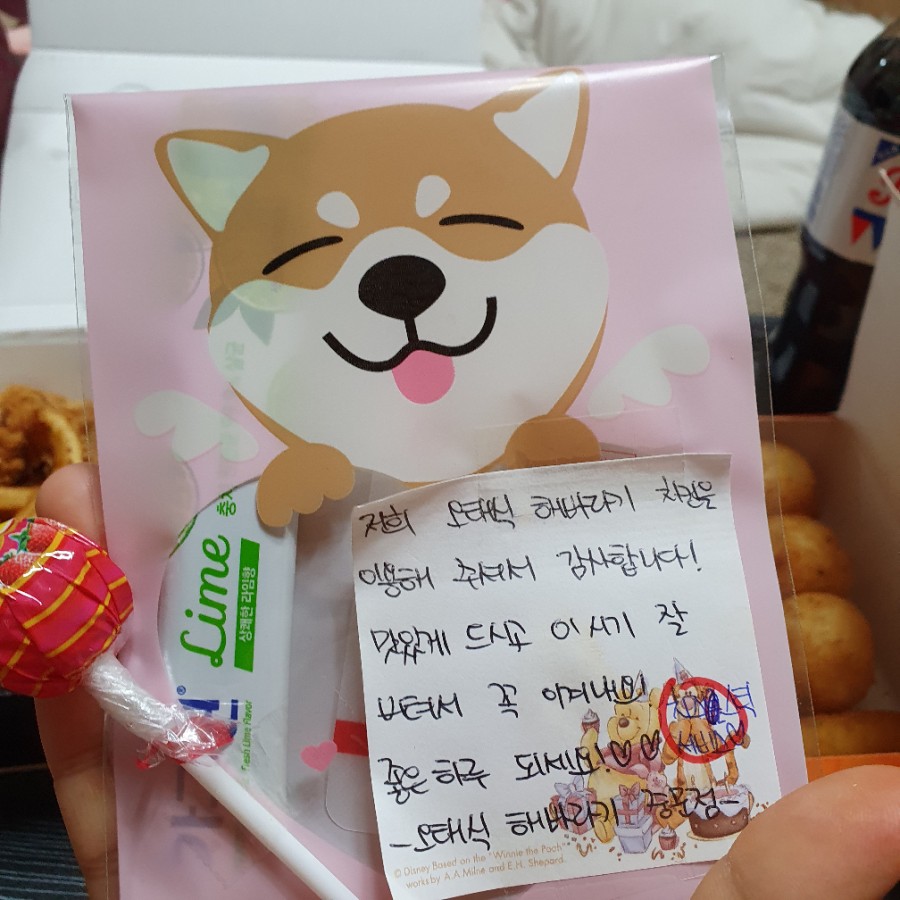 저희 오태식 해바라기 치킨을
이용해 주셔서 감사합니다!
맛있게 드시고 이 시기 잘
버텨서 꼭 이겨내요!
좋은하루 되세요!♡♡
서비스♡
-오태식 해바라기 점-
© Disney Based on the "Winnie the Pooh"
works by A.A.Milne and E.H. Shepard.
Lime
상쾌한 라임향
Fresh Lime Flavor